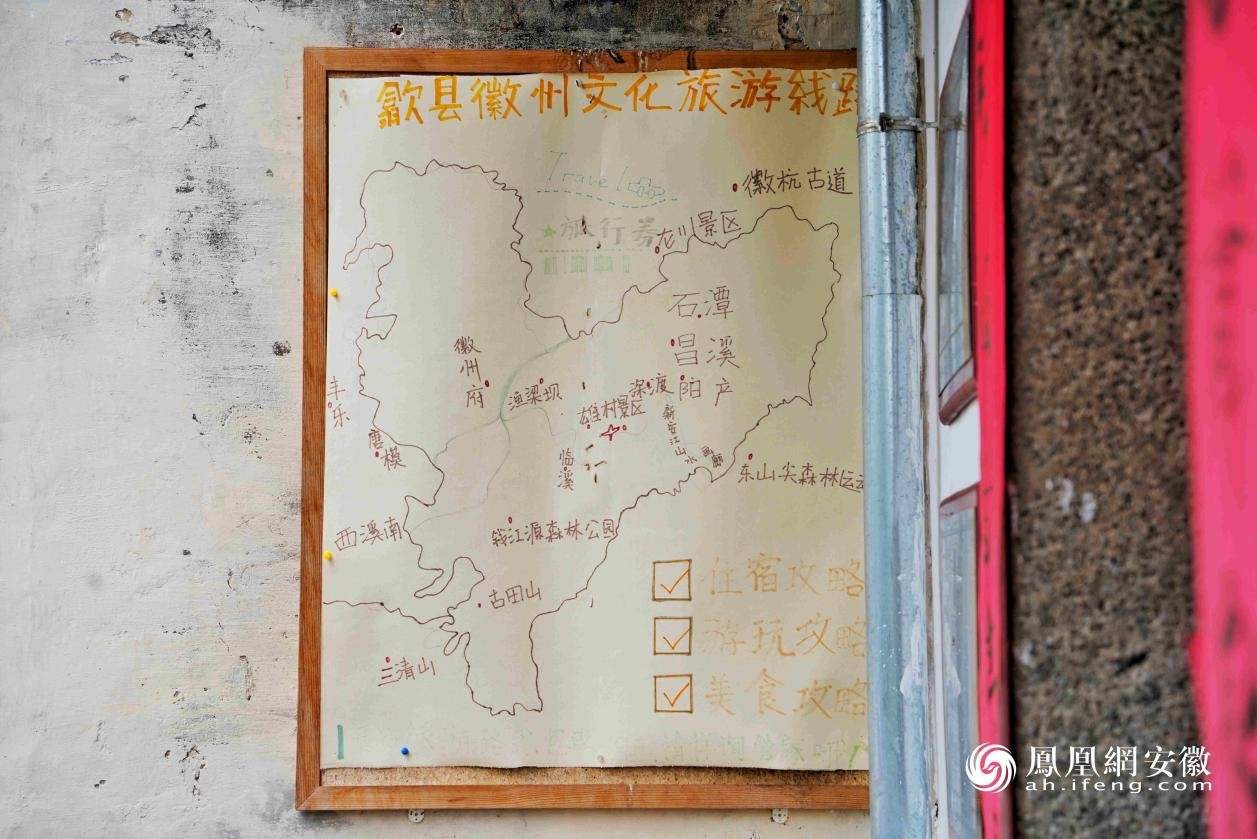 歙县徽州文化旅游线路
Travel
徽杭古道
旅行券
龙川景区
石潭
昌溪
徽州府
渔梁坝
深渡
阳产
丰乐
雄村景区
新安江山水画廊
唐模
临溪
东山尖森林运动
西溪南
钱江源森林公园
古田山
住宿攻略
游玩攻略
美食攻略
三清山
鳳凰網安徽
ah.ifeng.com